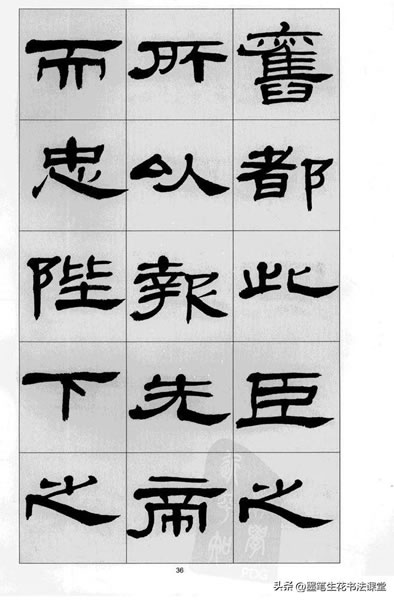 舊都此臣之
所以報先帝
而忠陛下之
36
头条 @墨笔生花书法课堂